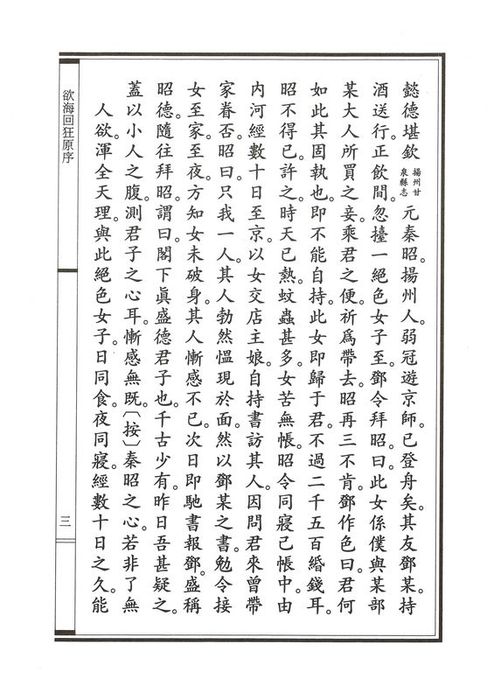 懿德堪欽 揚州甘泉縣志 元秦昭揚州人。弱冠遊京師。已登舟矣。其友鄧某。持
酒送行。正飲間。忽擡一絕色女子至。鄧令拜昭曰。此女係僕與某部
某大人所買之妾。乘君之便。祈為帶去。昭再三不肯。鄧作色曰。君何
如此其固執也。即不能自持。此女即歸于君。不過二千五百緡錢耳。
昭不得已。許之。時天已熱。蚊蟲甚多。女苦無帳。昭令同寢己帳中。由
內河經數十日至京。以女交店主娘。自持書訪其人。因問君來曾帶
家眷否。昭曰。只我一人。其人勃然慍現於面。然以鄧某之書。勉令接
女至家。至夜。方知女未破身。其人慚感不已。次日即馳書報鄧。盛稱
昭德。隨往拜昭。謂曰。閣下真盛德君子也。千古少有。昨日吾甚疑之。
蓋以小人之腹。測君子之心耳。慚感無既。〔按〕秦昭之心。若非了無
人欲。渾全天理。與此絕色女子。日同食。夜同寢。經數十日之久。能
欲海回狂原序
三